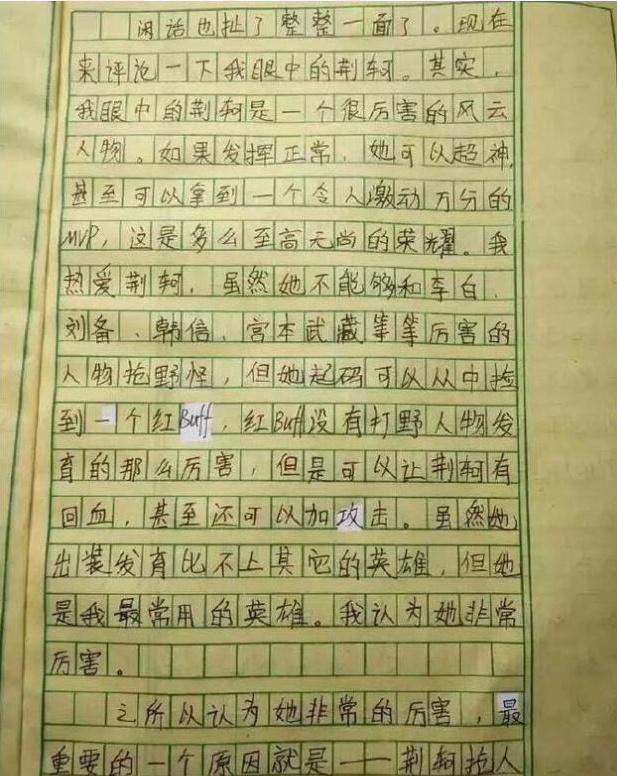 闲话也扯了整整一面了。现在
来评论一下我眼中的荆轲。其实，
我眼中的荆轲是一个很厉害的风云
人物。如果发挥正常，她可以超神，
甚至可以拿到一个令人激动万分的
MVP，这是多么至高无尚的荣耀。我
热爱荆轲，虽然她不能够和李白、
刘备、韩信、宫本武藏等等厉害的
人物抢野怪，但她起码可以从中捡
到一个红Buff，红Buff没有打野人物发
育的那么厉害，但是可以让荆轲有
回血，甚至还可以加攻击。虽然她
出装发育比不上其它的英雄，但她
是我最常用的英雄。我认为她非常
厉害。
之所以认为她非常的厉害，最
重要的一个原因就是——荆轲抢人